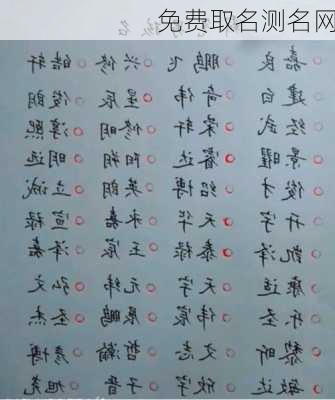 免费取名测名网
嘉良 鹏飞 兴修 皓轩
建白 奇伟 星辰 俊朗
经武 荣轩 修明 淳熙
景曜 睿达 阳朔 明远
俊才 绍博 英朗 立诚
开宇 天华 永嘉 宣禄
凯泽 泰禄 玉宸 泽嘉
康适 天宇 元纬 弘文
乐圣 伟宸 鹏晨 圣杰
黎昕 文志 哲瀚 彦博
敏达 欣宇 子晋 旭尧